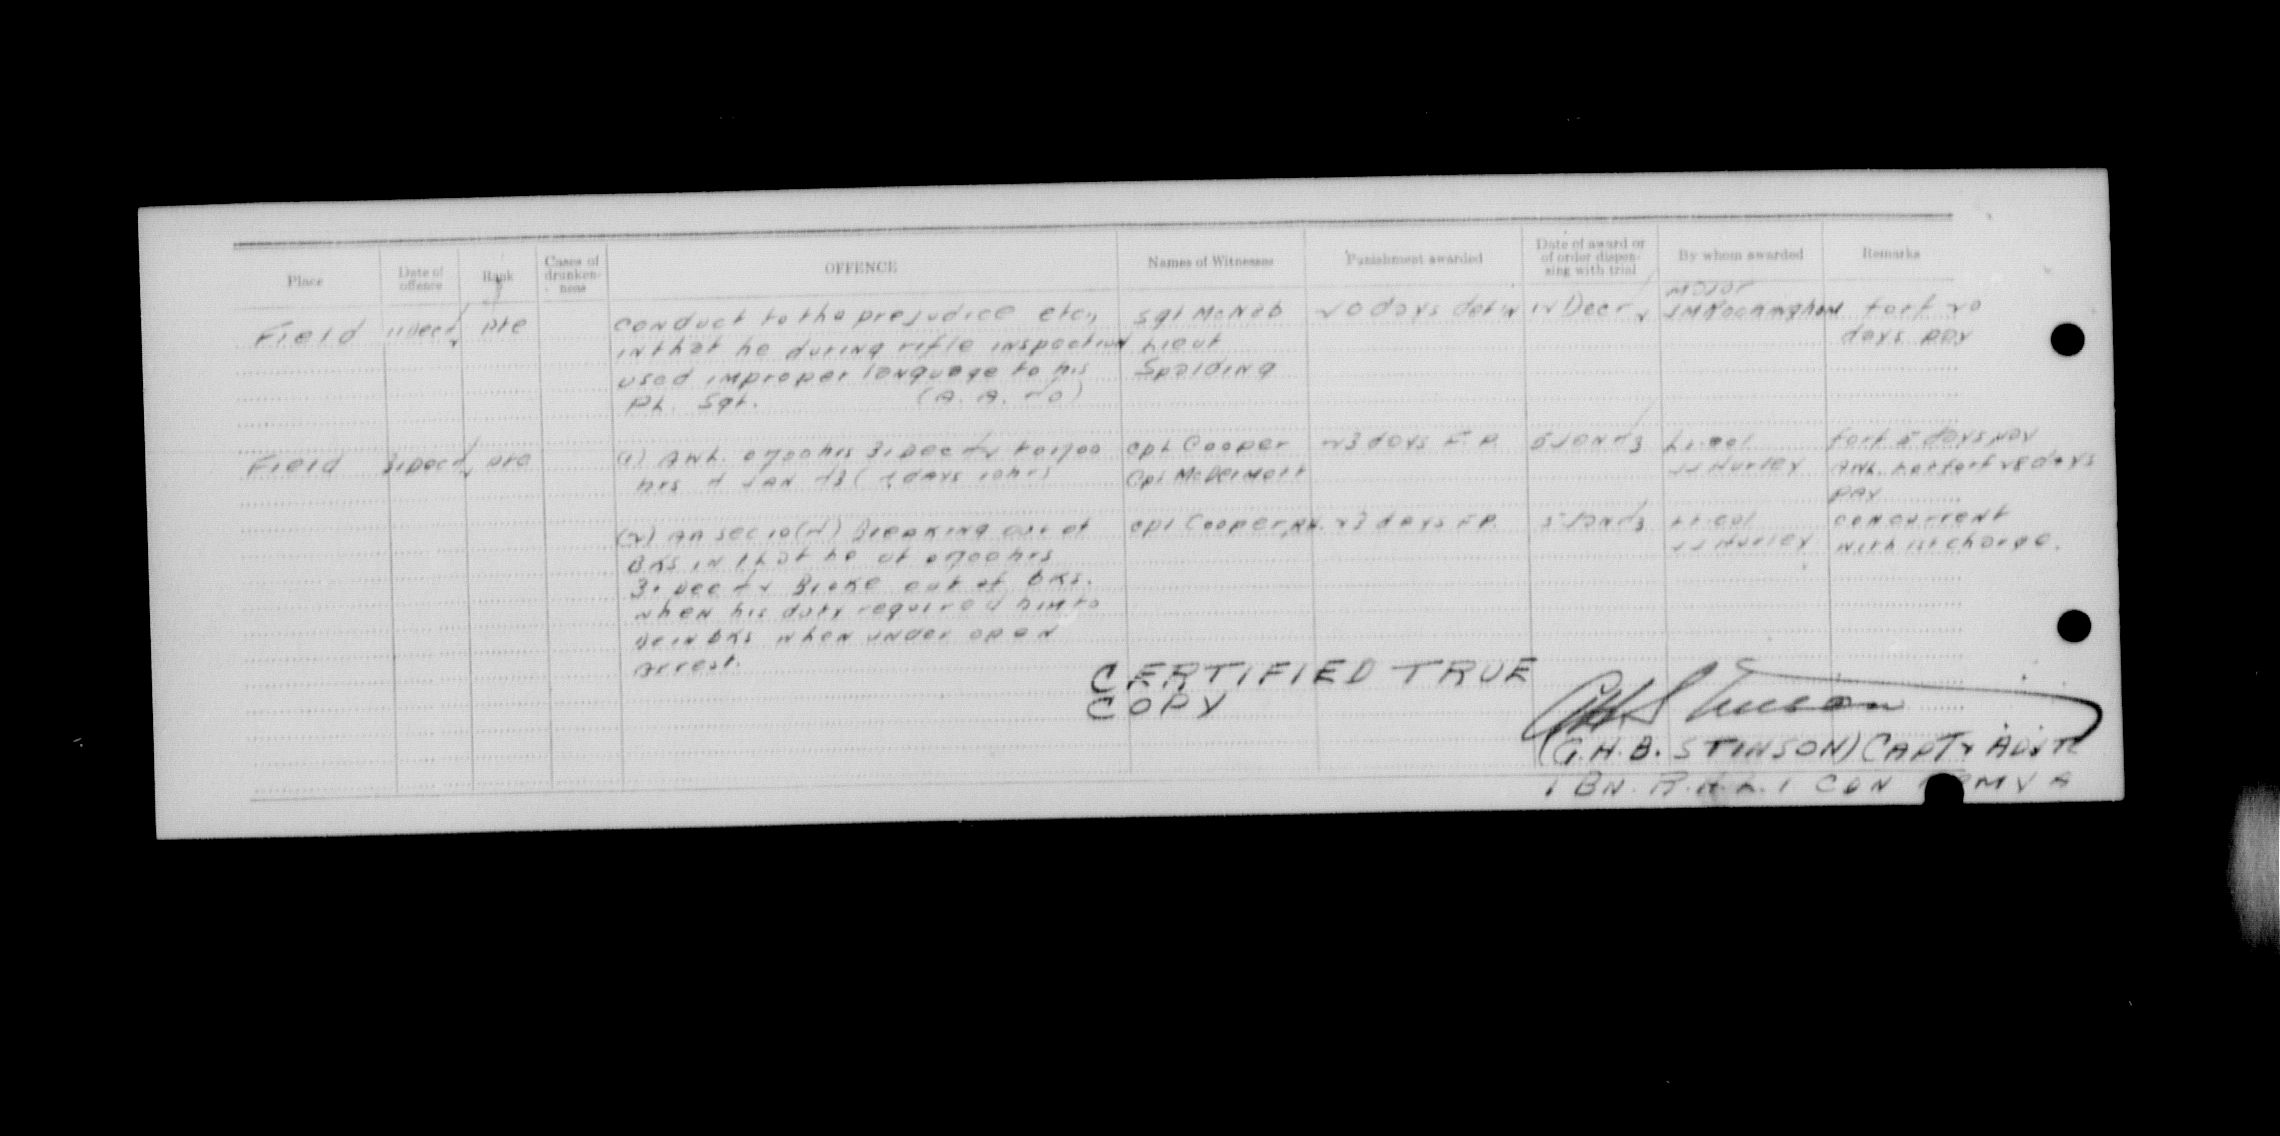 Place Date of offence Rank Cases of drunkenness OFFENCE Names of Witnesses Punishment awarded Date of award or of order dispensing with trial By whom awarded Remarks
Field 11 Dec 42 pte conduct to the prejudice etc, Sgt McNab 20 days detn 12 Dec 42 Major JMRockingham forf 20
in that he during rifle inspection Lieut days pay
used improper language to his Spalding
Pl. Sgt. (A. A. 40)
Field 31 Dec 42 pte (1) AWL. 0700 hrs 31 Dec 42 to 1700 cpl Cooper 23 days F.P. 5 Jan 43 Lt. col forf 5 days pay
hrs 4 JAN 43 (4 days 10 hrs) Cpl McDermott JJ Hurley AWL. forf 28 days
pay
(2) AA sec 10(4) Breaking out of cpl Cooper, 23 days FP 5 Jan 43 Lt. col concurrent
Bks in that he at 0700 hrs JJ Hurley with 1st charge.
31 Dec 42 Broke out of bks.
when his duty required him to
be in bks when under open
arrest.
CERTIFIED TRUE
COPY
GHB Stinson
(G.H.B. STINSON) CAPT & ADJT
1 BN. R.H.L.I CDN ARMY A